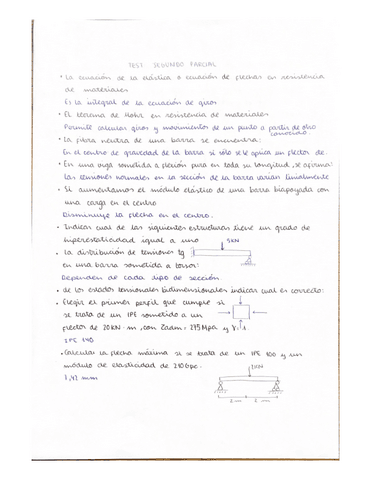 TEST SEGUNDO PARCIAL
• La ecuación de la elástica o ecuación de flechas en resistencia
de materiales
Es la integral de la ecuación de giros
• El teorema de Mohr en resistencia de materiales
Permite calcular giros y movimientos de un punto a partir de otro
conocido
• La fibra neutra de una barra se encuentra:
En el centro de gravedad de la barra si sólo se le aplica un flector.
• En una viga sometida a flexión pura en toda su longitud, se afirma:
Las tensiones normales en la sección de la barra varían linealmente
• Si aumentamos el módulo elástico de una barra biapoyada con
una carga en el centro
Disminuye la flecha en el centro.
• Indicar cual de las siguientes estructuras tiene un grado de
hiperestaticidad igual a uno
5KN
• La distribución de tensiones tg
en una barra sometida a torsor:
Dependen de cada tipo de sección.
• de los estados tensionales bidimensionales indicar cual es correcto:
• Elegir el primer perfil que cumple si
se trata de un IPE sometido a un
flector de 20 kN·m, con σadm = 275 Mpa y γ=1
IPE 140
• Calcular la flecha máxima si se trata de un IPE 100 y un
módulo de elasticidad de 210 Gpa.
1,42 mm